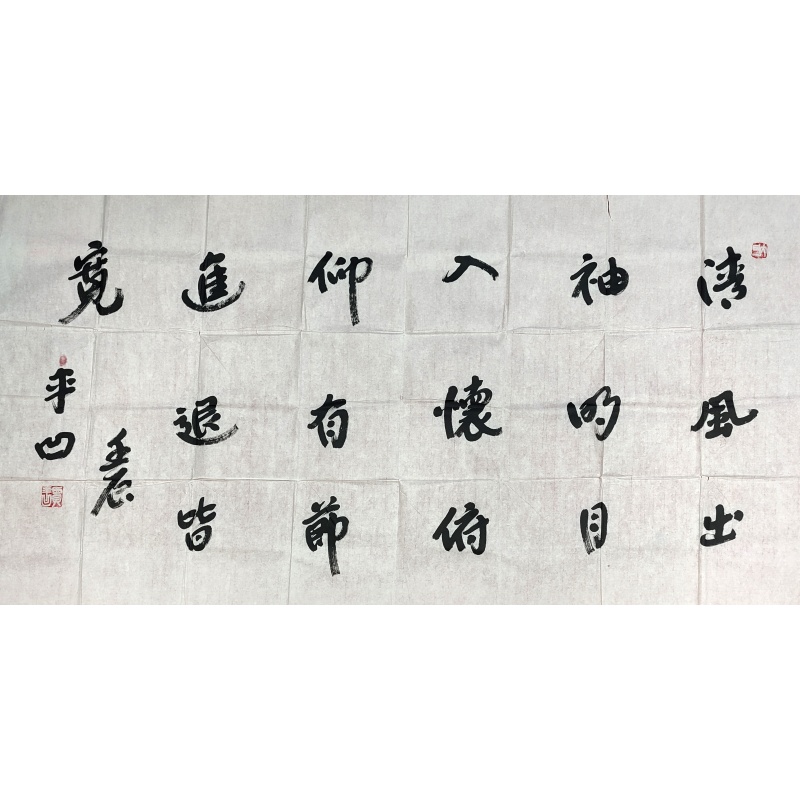 清風出
袖明月
入懷俯
仰有節
進退皆
寬
壬辰
平凹